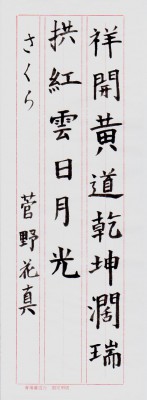 祥開黄道乾坤濶瑞
拱紅雲日月光
さくら 菅野花真